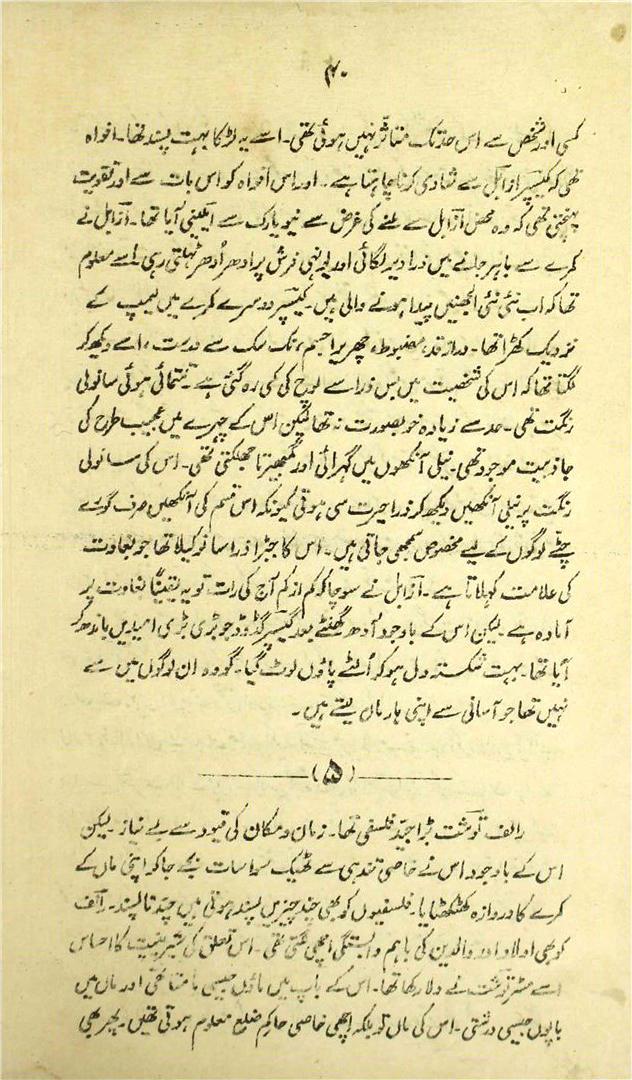 ۴۰
کسی اور شخص سے اس حد تک متاثر نہیں ہوئی تھی۔ اسے یہ لڑکا بہت پسند تھا۔ افواہ
تھی کہ کیسپر ازابل سے شادی کرنا چاہتا ہے۔ اور اس افواہ کو اس بات سے اور تقویت
پہنچتی تھی کہ وہ محض ازابل سے ملنے کی غرض سے نیویارک سے ایلبنی آیا تھا۔ ازابل نے
کمرے سے باہر جانے میں ذرا دیر لگائی اور یونہی فرش پر ادھر اُدھر ٹہلتی رہی۔ اسے معلوم
تھا کہ اب نئی نئی الجھنیں پیدا ہونے والی ہیں۔ کیسپر دوسرے کمرے میں لیمپ کے
نزدیک کھڑا تھا۔ دراز قد، مضبوط، چھریرا جسم، نک سک سے درست، اسے دیکھ کر
لگتا تھا کہ اس کی شخصیت میں بس ذرا سے لوچ کی کمی رہ گئی ہے۔ تمتمائی ہوئی سانولی
رنگت تھی۔ حد سے زیادہ خوبصورت نہ تھا لیکن اس کے چہرے میں عجیب طرح کی
جاذبیت موجود تھی۔ نیلی آنکھوں میں گہرائی اور گمبھیرتا جھلکتی تھی۔ اس کی سانولی
رنگت پر نیلی آنکھیں دیکھ کر ذرا حیرت سی ہوتی کیونکہ اس قسم کی آنکھیں صرف گورے
چٹے لوگوں کے لیے مخصوص سمجھی جاتی ہیں۔ اس کا جبڑا ذرا سا نوکیلا تھا جو بغاوت
کی علامت کہلاتا ہے۔ ازابل نے سوچا کہ کم از کم آج کی رات تو یہ یقیناً بغاوت پر
آمادہ ہے۔ لیکن اس کے باوجود آدھ گھنٹے بعد کیسپر گڈوڈ جو بڑی بڑی امیدیں باندھ کر
آیا تھا۔ بہت شکستہ دل ہو کر اُلٹے پاؤں لوٹ گیا۔ گو وہ ان لوگوں میں سے
نہیں تھا جو آسانی سے اپنی ہار مان لیتے ہیں۔
(۵)
رالف توشٹ بڑا جیّد فلسفی تھا۔ زمان و مکان کی قیود سے بے نیاز۔ لیکن
اس کے باوجود اس نے خاصی تندہی سے ٹھیک سوا سات بجے جا کر اپنی ماں کے
کمرے کا دروازہ کھٹکھٹایا۔ فلسفیوں کو بھی چند چیزیں پسند ہوتی ہیں چند ناپسند۔ رالف
کو بھی اولاد اور والدین کی باہم وابستگی اچھی لگتی تھی۔ اس تعلق کی شیرینیت کا احساس
اسے مسٹر توشٹ نے دلا رکھا تھا۔ اس کے باپ میں ماؤں جیسی مامتا تھی اور ماں میں
باپوں جیسی درشتی۔ اس کی ماں تو بلکہ اچھی خاصی حاکم ضلع معلوم ہوتی تھیں۔ پھر بھی